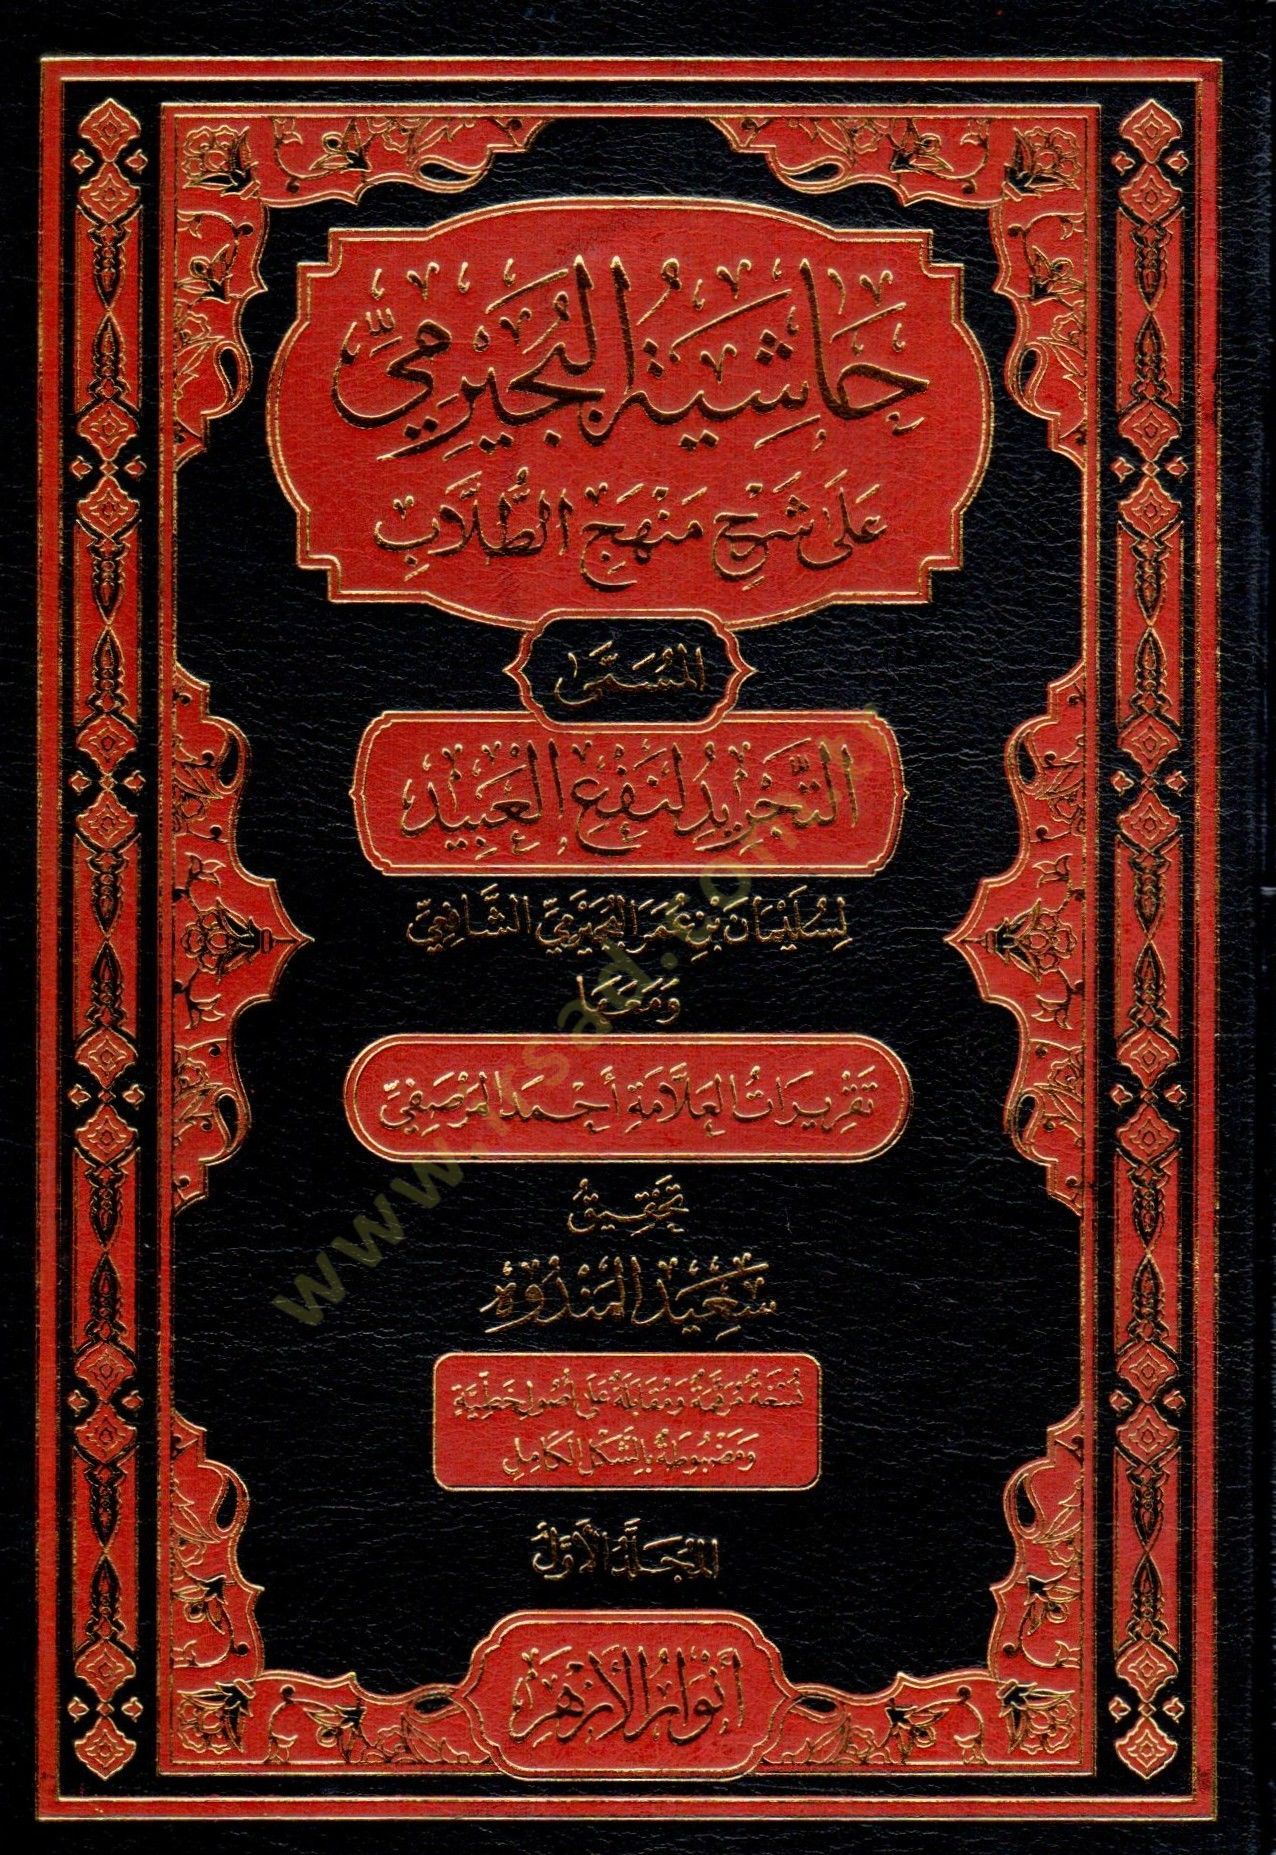 حَاشِيَةُ الْبُجَيْرِمِيِّ
عَلَى شَرْحِ مَنْهَجِ الطُّلَّابِ
المُسَمَّى
التَّجْرِيدُ لِنَفْعِ الْعَبِيدِ
لِسُلَيْمَانَ بْنِ عُمَرَ الْبُجَيْرِمِيِّ الشَّافِعِيِّ
وَمَعَهَا
تَقْرِيرَاتُ الْعَلَّامَةِ أَحْمَدَ الْمَرْصَفِيِّ
تَحْقِيقُ
سَعِيد الْمَنْدُوْه
نُسْخَةٌ مُرَقَّمَةٌ وَمُقَابَلَةٌ عَلَى أُصُولٍ خَطِّيَّةٍ
وَمَضْبُوطَةٌ بِالشَّكْلِ الْكَامِلِ
المُجَلَّدُ الْأَوَّلُ
أَنْوَارُ الْأَزْهَرِ